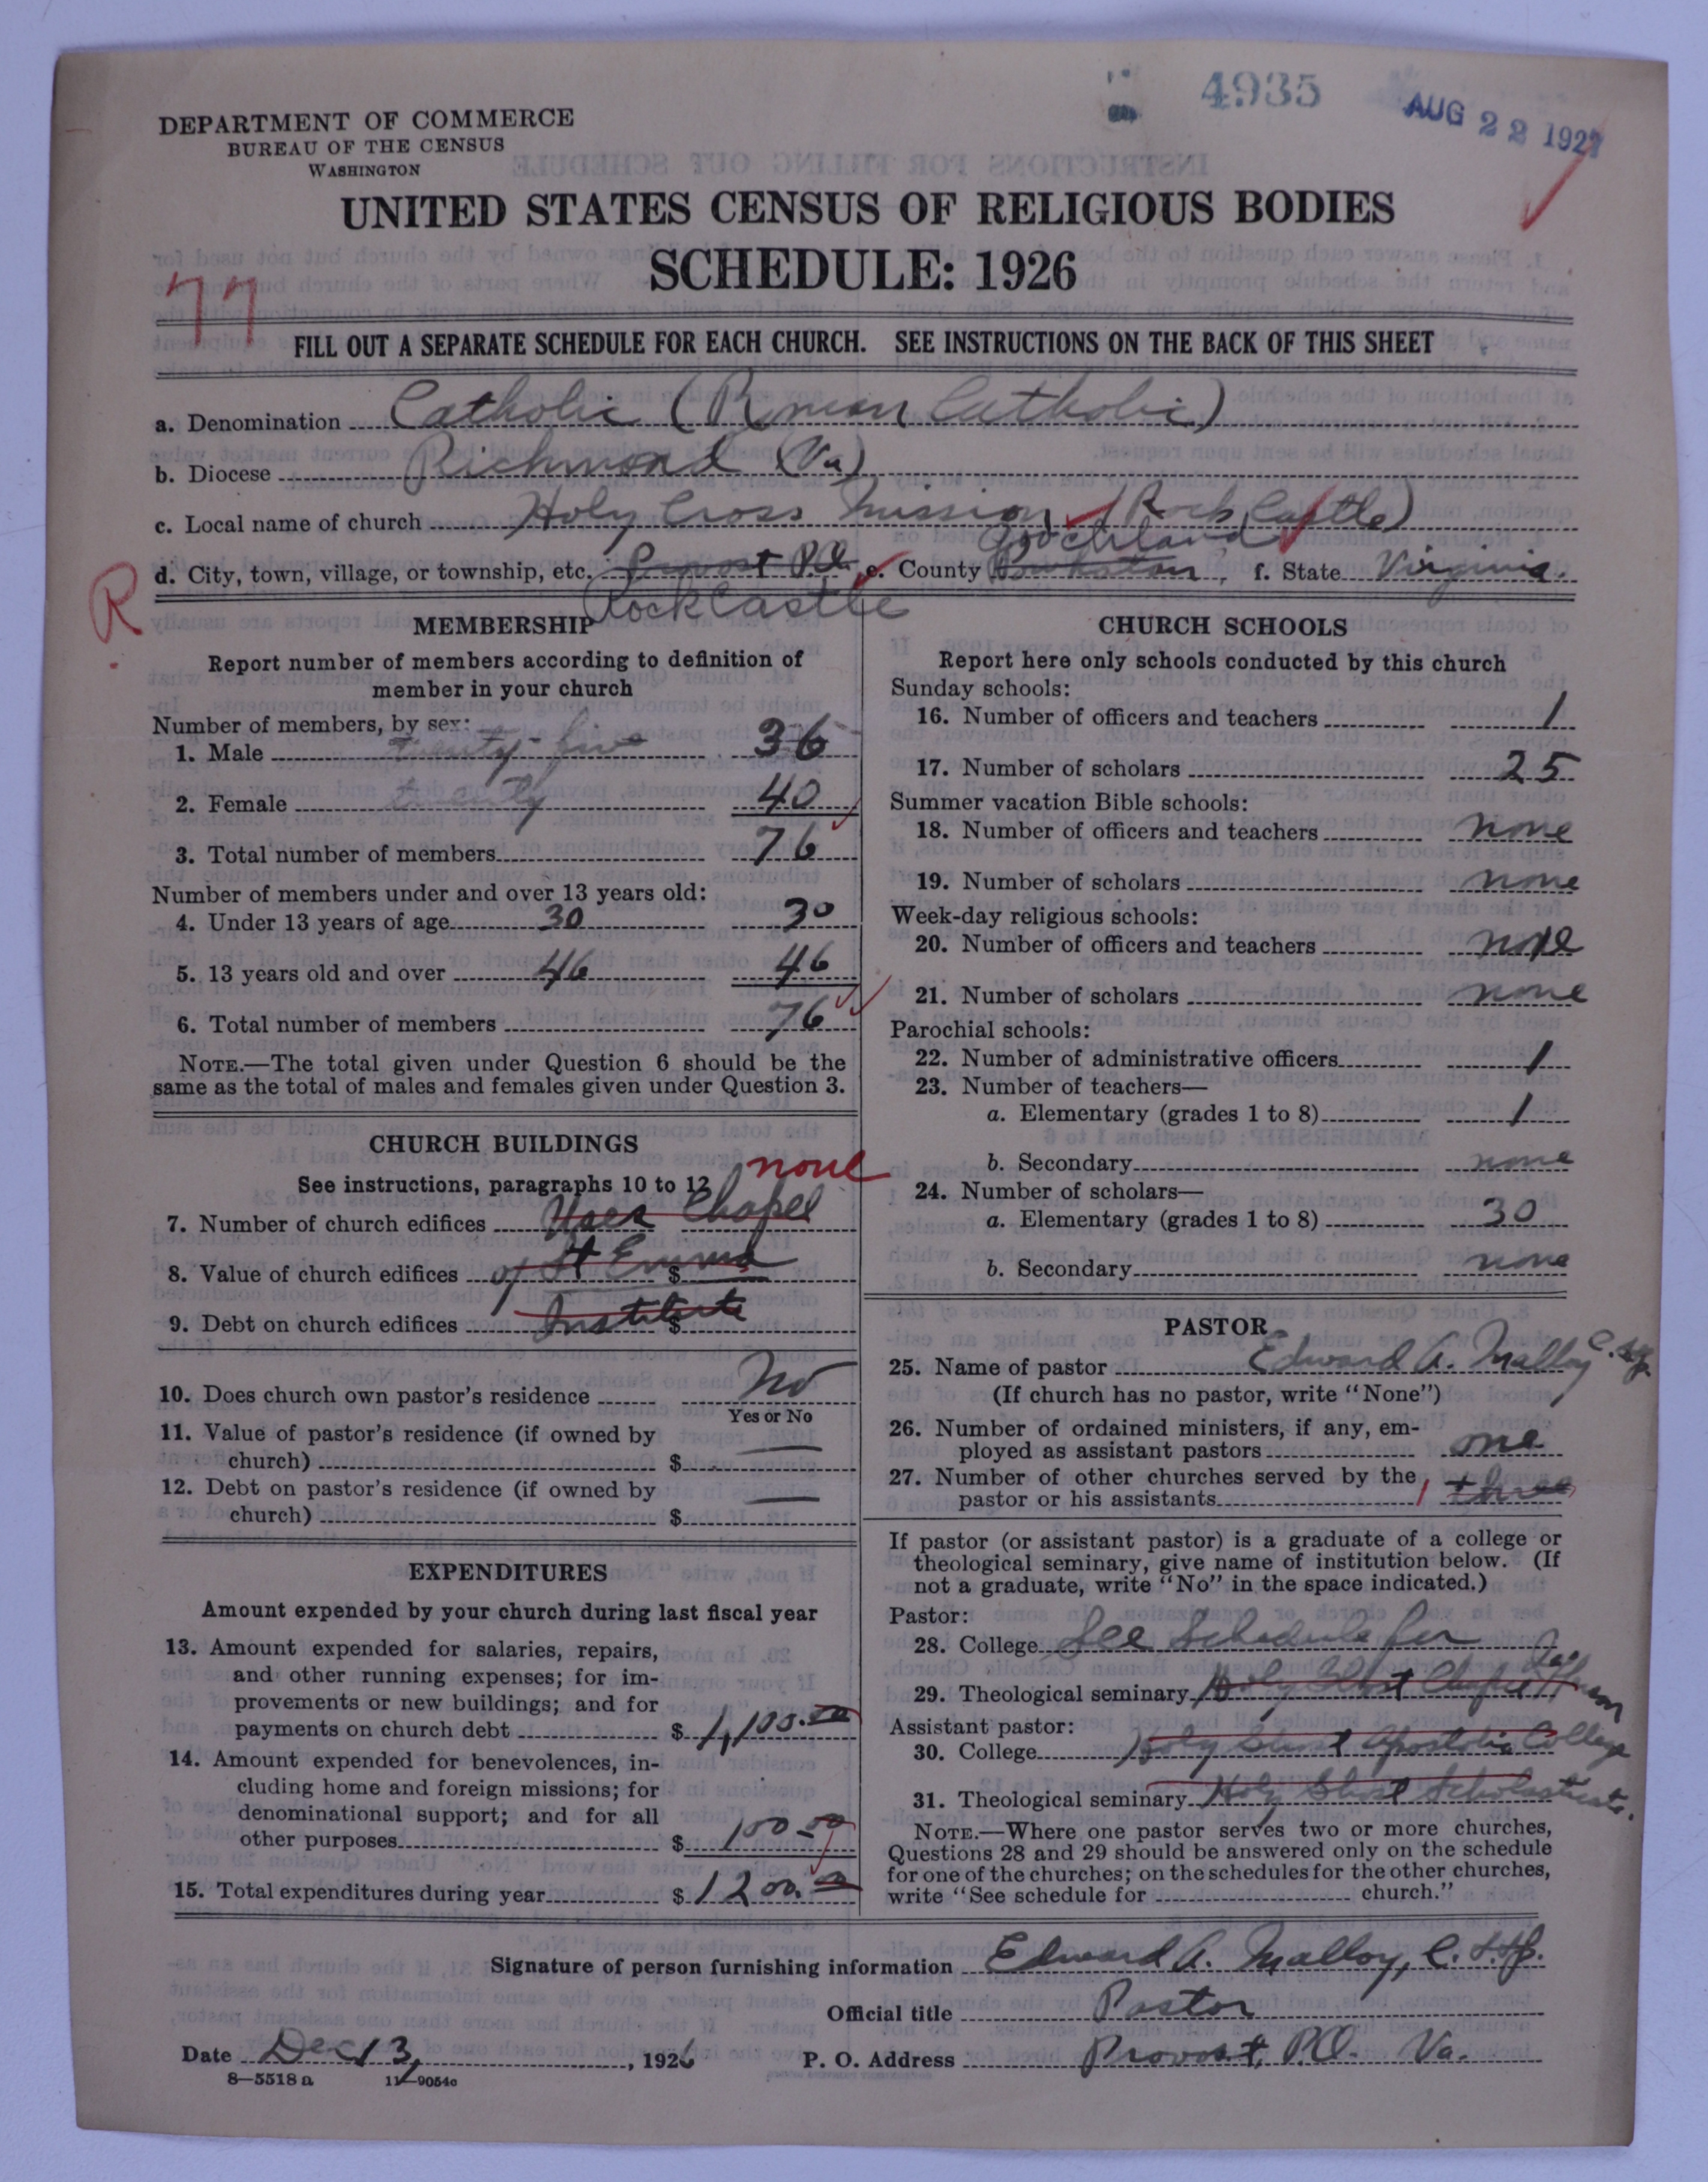 4935
AUG 22 1927
DEPARTMENT OF COMMERCE
BUREAU OF THE CENSUS
WASHINGTON
UNITED STATES CENSUS OF RELIGIOUS BODIES
SCHEDULE: 1926
77
FILL OUT A SEPARATE SCHEDULE FOR EACH CHURCH. SEE INSTRUCTIONS ON THE BACK OF THIS SHEET
a. Denomination Catholic (Roman Catholic)
b. Diocese Richmond (Va)
c. Local name of church Holy Cross Mission (Rock Castle)
Goochland
d. City, town, village, or township, etc. Provost P.O. e. County Powhatan, f. State Virginia.
R Rock Castle
MEMBERSHIP
Report number of members according to definition of
member in your church
Number of members, by sex:
1. Male twenty-five 36
2. Female twenty 40
3. Total number of members 76
Number of members under and over 13 years old:
4. Under 13 years of age 30 30
5. 13 years old and over 46 46
6. Total number of members 76
NOTE.—The total given under Question 6 should be the
same as the total of males and females given under Question 3.
CHURCH BUILDINGS
See instructions, paragraphs 10 to 12 none
7. Number of church edifices Uses Chapel
8. Value of church edifices of St Emma $
9. Debt on church edifices Institute $
10. Does church own pastor's residence No
Yes or No
11. Value of pastor's residence (if owned by
church) $ —
12. Debt on pastor's residence (if owned by
church) $ —
EXPENDITURES
Amount expended by your church during last fiscal year
13. Amount expended for salaries, repairs,
and other running expenses; for im-
provements or new buildings; and for
payments on church debt $ 1,100.00
14. Amount expended for benevolences, in-
cluding home and foreign missions; for
denominational support; and for all
other purposes $ 100.00
15. Total expenditures during year $ 1200.00
CHURCH SCHOOLS
Report here only schools conducted by this church
Sunday schools:
16. Number of officers and teachers 1
17. Number of scholars 25
Summer vacation Bible schools:
18. Number of officers and teachers none
19. Number of scholars none
Week-day religious schools:
20. Number of officers and teachers none
21. Number of scholars none
Parochial schools:
22. Number of administrative officers 1
23. Number of teachers—
a. Elementary (grades 1 to 8) 1
b. Secondary none
24. Number of scholars—
a. Elementary (grades 1 to 8) 30
b. Secondary none
PASTOR
25. Name of pastor Edward A. Malloy C.S.Sp.
(If church has no pastor, write "None")
26. Number of ordained ministers, if any, em-
ployed as assistant pastors one
27. Number of other churches served by the
pastor or his assistants 1 three
If pastor (or assistant pastor) is a graduate of a college or
theological seminary, give name of institution below. (If
not a graduate, write "No" in the space indicated.)
Pastor:
28. College See Schedule for
29. Theological seminary Holy Ghost Chapel
Assistant pastor:
30. College Holy Ghost Apostolic College
31. Theological seminary Holy Ghost Scholasticate.
NOTE.—Where one pastor serves two or more churches,
Questions 28 and 29 should be answered only on the schedule
for one of the churches; on the schedules for the other churches,
write "See schedule for church."
Signature of person furnishing information Edward A. Malloy, C.S.Sp.
Official title Pastor
Date Dec 13, 1926 P. O. Address Provost, P.O. Va.
8—5518a 11—9054c